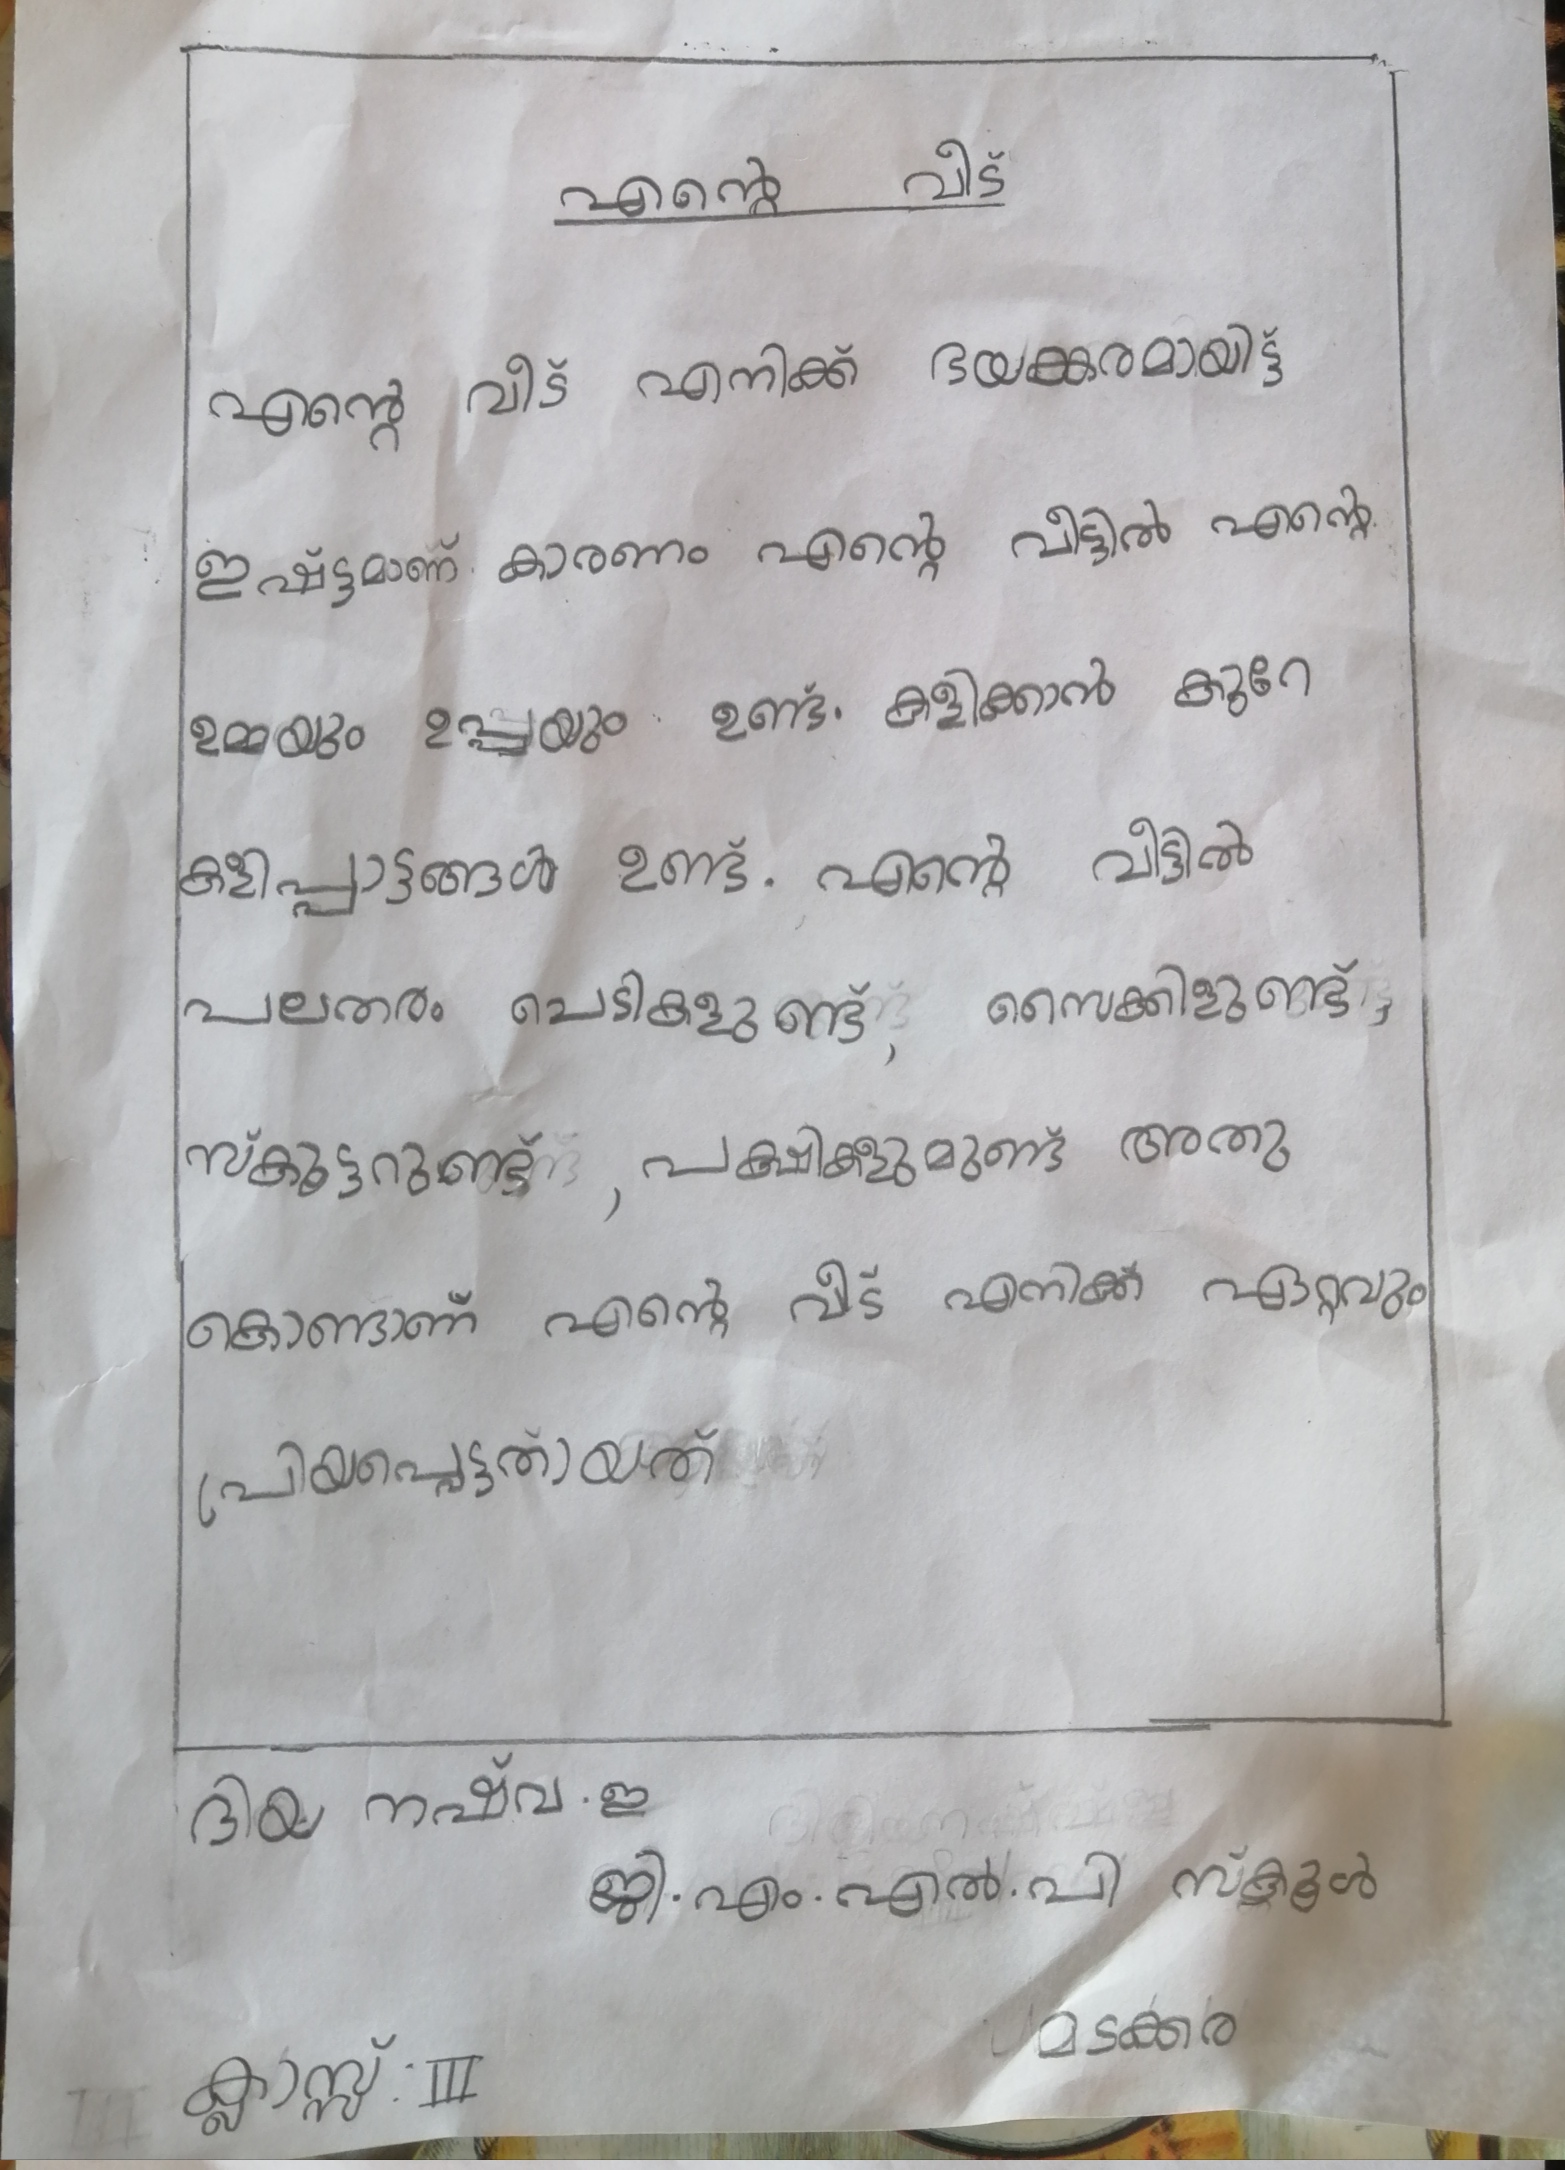 എന്റെ വീട്
എന്റെ വീട് എനിക്ക് ഭയങ്കരമായിട്ട്
ഇഷ്ട്ടമാണ് കാരണം എന്റെ വീട്ടിൽ എന്റെ
ഉമ്മയും ഉപ്പയും ഉണ്ട്. കളിക്കാൻ കുറേ
കളിപ്പാട്ടങ്ങൾ ഉണ്ട്. എന്റെ വീട്ടിൽ
പലതരം ചെടികളുണ്ട്, സൈക്കിളുണ്ട്,
സ്കൂട്ടറുണ്ട്, പക്ഷികളുമുണ്ട് അതു
കൊണ്ടാണ് എന്റെ വീട് എനിക്ക് ഏറ്റവും
പ്രിയപ്പെട്ടതായത്
ദിയ നഷ്‌വ.ഇ
ജി.എം.എൽ.പി സ്കൂൾ
മടക്കര
ക്ലാസ്സ്: III